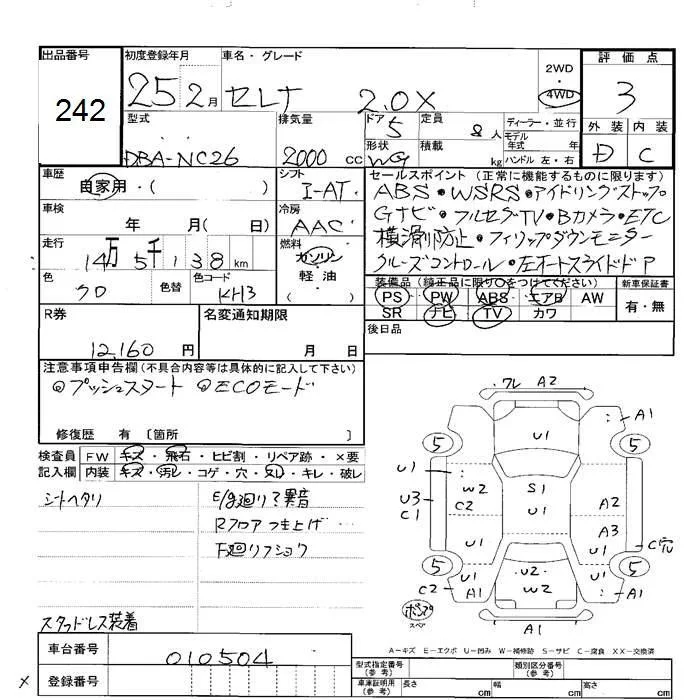 出品番号
242
初度登録年月
25 2月
車名・グレード
セレナ 2.0X
2WD
・
4WD
評価点
3
外装 内装
D C
型式
DBA-NC26
排気量
2000 cc
ドア 5
形状 WG
定員 8 人
積載 kg
ディーラー・並行
モデル年式 年
ハンドル 左・右
車歴
自家用・( )
シフト
I-AT
セールスポイント (正常に機能するものに限ります)
ABS・WSRS・アイドリングストップ
Gナビ・フルセグTV・Bカメラ・ETC
横滑り防止・フィリップダウンモニター
クルーズコントロール・左オートスライドドア
車検
年 月( 日)
冷房
AAC
走行
14万5千138 km
燃料
ガソリン
軽・油
( )
色
クロ
色替
色コード
KH3
装備品 (純正品に限り○をつけてください)
PS PW ABS エアB AW
SR ナビ TV カワ
新車保証書
有・無
R券
12,160 円
名変通知期限
月 日
後日品
注意事項申告欄(不具合内容等は具体的に記入して下さい)
◎プッシュスタート ◎ECOモード
修復歴 有 〔箇所 〕
検査員記入欄
FW キズ・飛石・ヒビ割・リペア跡・×要
内装 キズ・汚レ・コゲ・穴・スレ・キレ・破レ
シートヘタリ
E/g廻り?異音
Rフロアつき上げ…
下廻りフショク
スタッドレス装着
ワレ A2
A1
5 U1 5
U1
U3
C1
W2
C2
S1
U1
A2
A3
C穴
U1 U1
5 5
U1
A1
U2
W2
U1
A1
ポンプ
スペア
A1
A-キズ E-エクボ U-凹み W-補修跡 S-サビ C-腐食 XX-交換済
車台番号
010504
× 登録番号
型式指定番号
(参考)
類別区分番号
(参考)
車庫証明用
(参考)
長さ cm
幅 cm
高さ cm